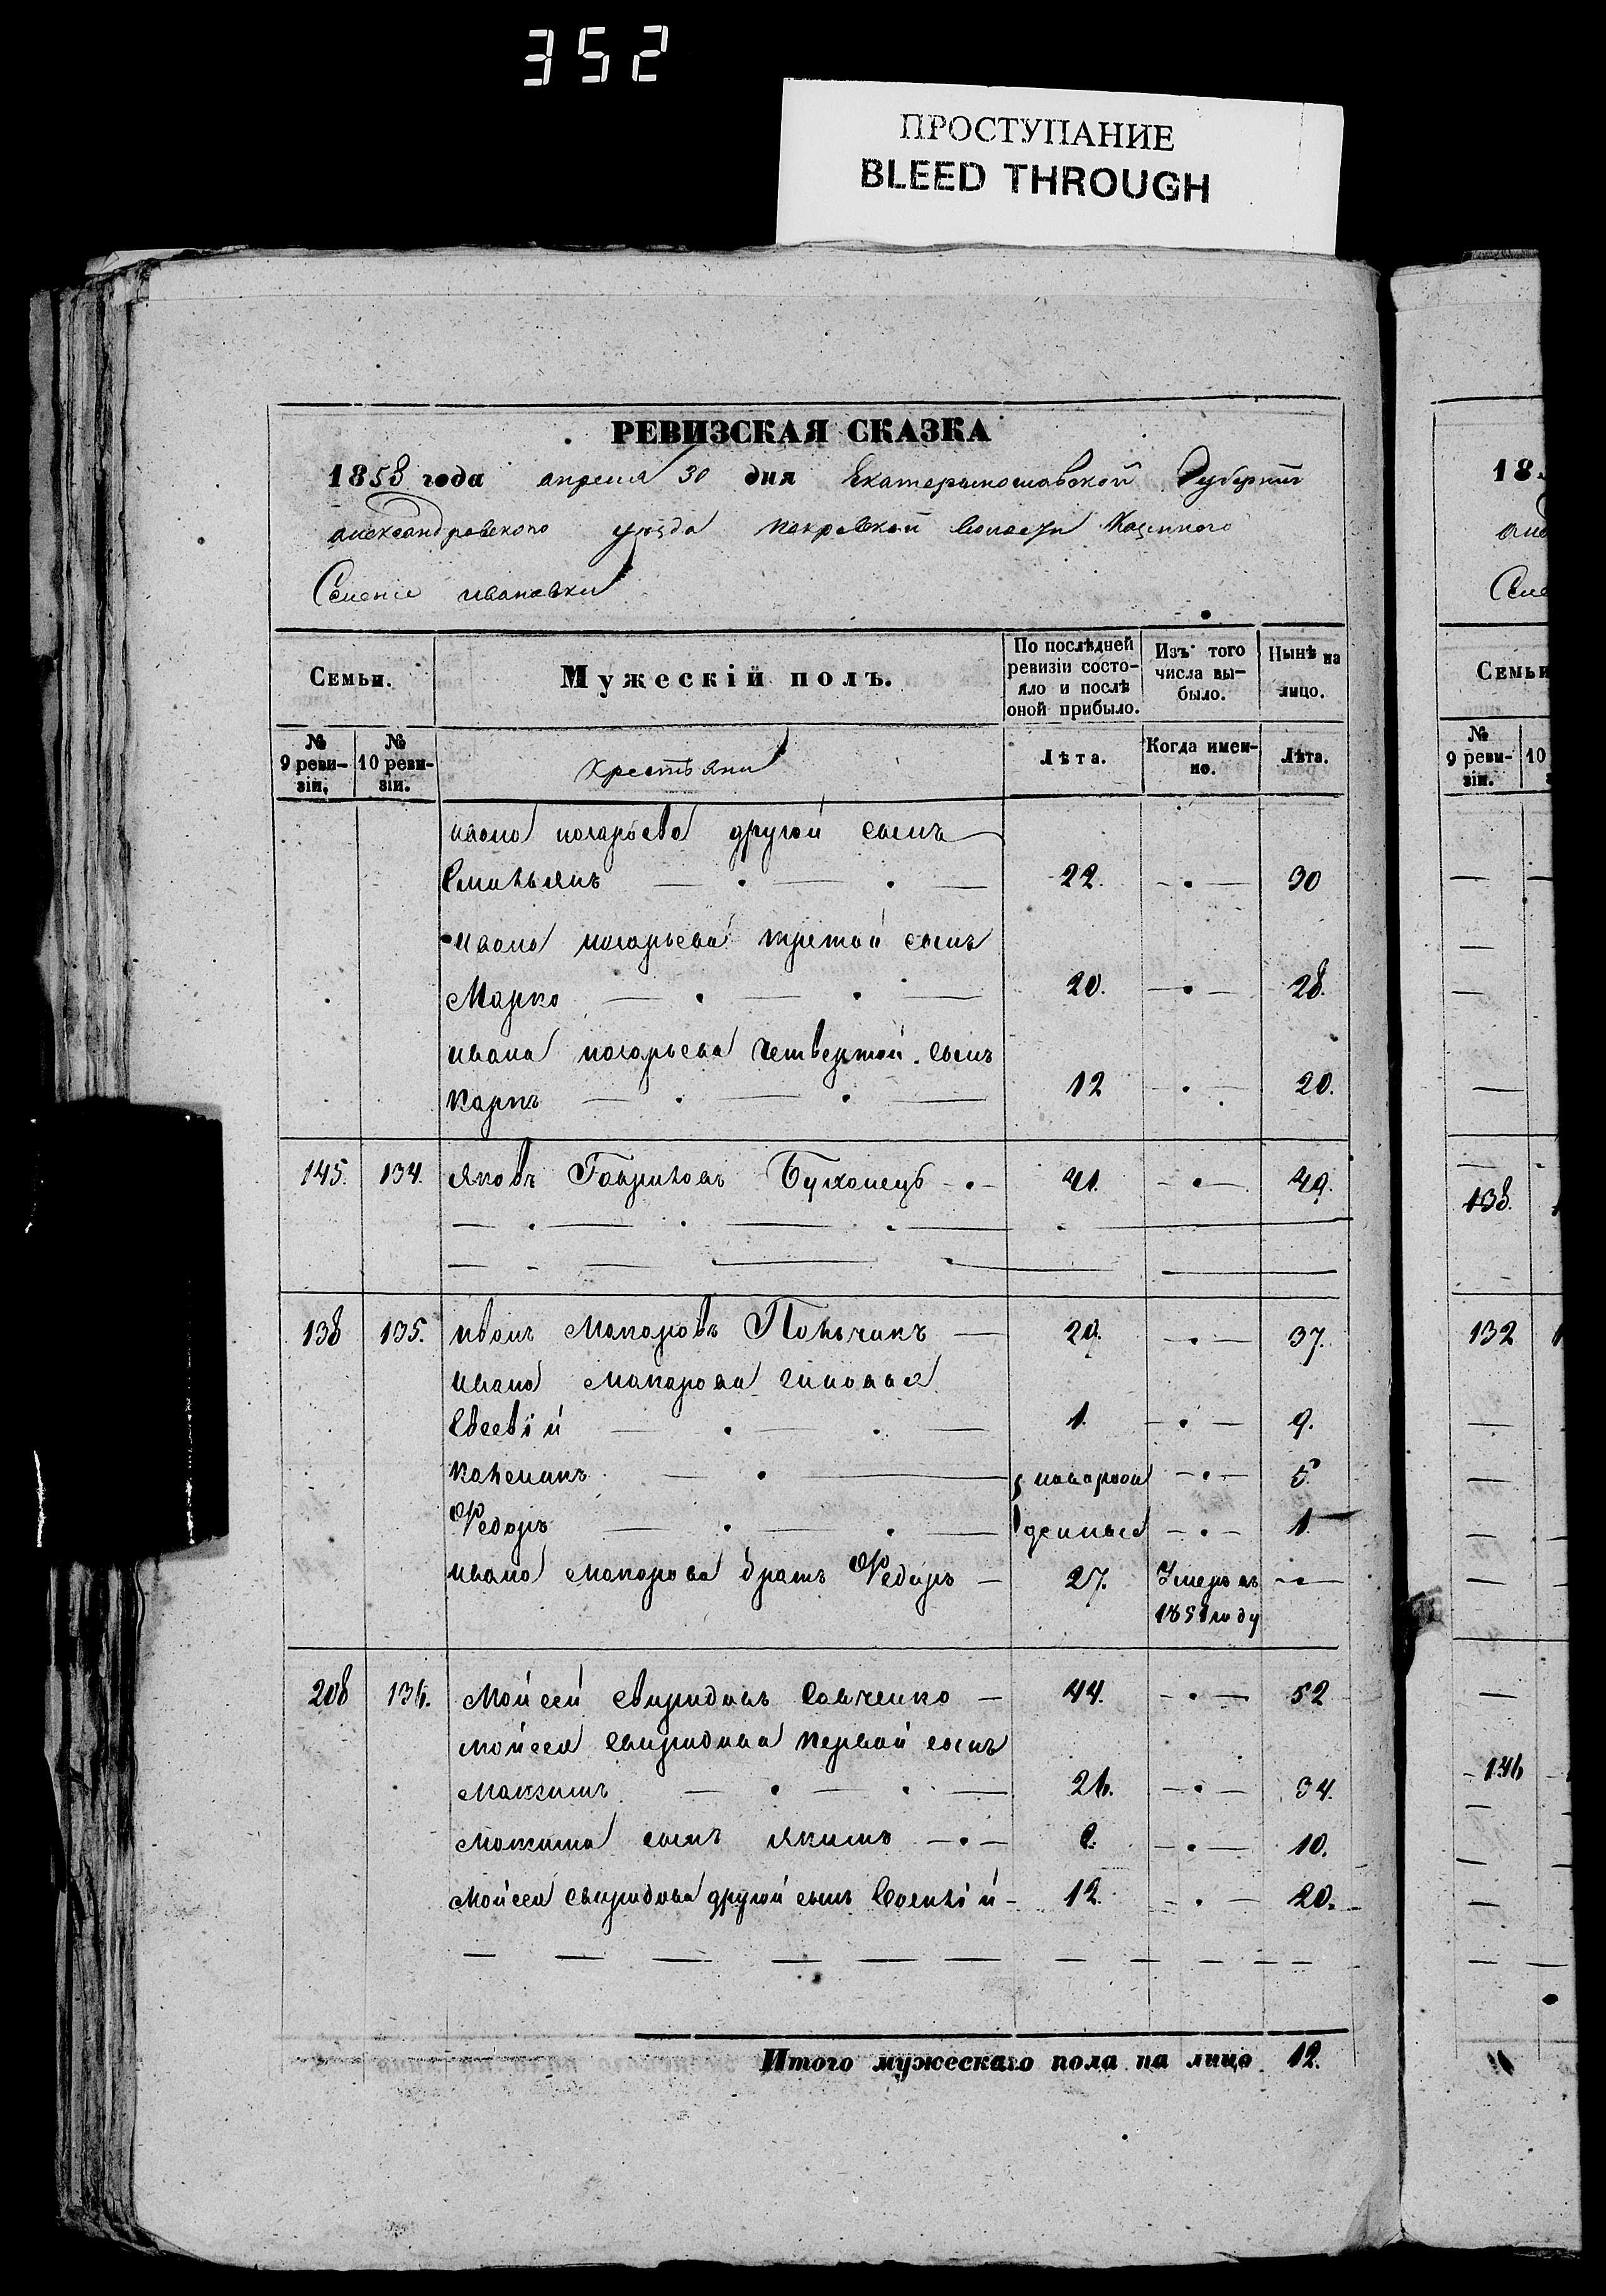 352
ПРОСТУПАНИЕ
BLEED THROUGH
РЕВИЗСКАЯ СКАЗКА
1858 года апреля 30 дня Екатеринославской Губернии
александровского уезда покровской волости Казенного
Селения ивановки
Семьи.
Мужескій полъ.
По послѣдней ревизіи состояло и послѣ оной прибыло.
Изъ того числа выбыло.
Нынѣ на лицо.
№ 9 ревизіи.
№ 10 ревизіи.
крестьяни
Лѣта.
Когда именно.
Лѣта.
ивана другой сынъ
Емильянъ 22. 30
ивана третой сынъ
Марко 20. 28.
ивана четвертой сынъ
Карпъ 12 20.
145. 134. яковъ Гавриловъ 41. 49.
138 135. иванъ Макаровъ 29. 37.
ивана Макарова синовья
Евсевій 1. 9.
Каленикъ новорож 5
Федоръ денные 1.
ивана Макарова братъ Федоръ 27. Умеръ въ
1851 году
208 136. Мойсей Свиридовъ Савченко 44. 52
мойсея Свиридова первой сынъ
Максимъ 26. 34.
Максима сынъ якимъ 2. 10.
Мойсея Свиридова другой сынъ 12. 20.
Итого мужескаго пола на лицо 12.
18
Семьи
№ 9 ревизіи.
10
138.
132
146